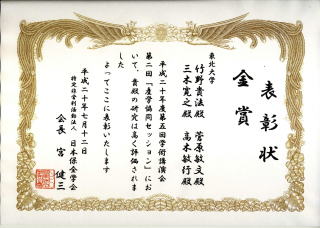 表彰状
金賞
東北大学
竹野貴法殿　菅原敏文殿
三木寛之殿　高木敏行殿
平成二十年度第五回学術講演会
第二回「産学協同セッション」にお
いて、貴殿の研究は高く評価されま
した
よってここに表彰いたします
平成二十年七月十二日
特定非営利活動法人　日本保全学会
会長　宮　健三